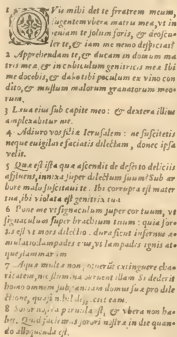 1 Vis mihi det te fratrem meum,
sugentem vbera matris meæ, vt in-
ueniam te solum foris, & deoscu-
ler te, & iam me nemo despiciat?
2 Apprehendam te, & ducam in domum ma
tris meæ, & in cubiculum genitricis meæ. Ibi
me docebis, & dabo tibi poculum ex vino con
dito, & mustum malorum granatorum meo-
rum.
3 Læua eius sub capite meo: & dextera illius
amplexabitur me.
4 Adiuro vos filiæ Ierusalem: ne suscitetis
neque euigilare faciatis dilectam, donec ipsa
velit.
5 Quæ est ista quæ ascendit de deserto deliciis
affluens, innixa super dilectum suum? Sub ar
bore malo suscitaui te. Ibi corrupta est mater
tua, ibi violata est genitrix tua.
6 Pone me vt signaculum super cor tuum, vt
signaculum super brachium tuum: quia for-
tis est vt mors dilectio, dura sicut infernus æ-
mulatio: lampades eius, vt lampades ignis at-
que flammarum
7 Aquæ multæ non potuerunt extinguere cha-
ritatem, nec flumina obruent illam. Si dederit
homo omnem substantiam domus suæ pro dile
ctione, quasi nihil despiciet eam.
8 Soror nostra paruula est, & vbera non ha-
bet. Quid faciemus sorori nostræ in die quan-
do alloquenda est.